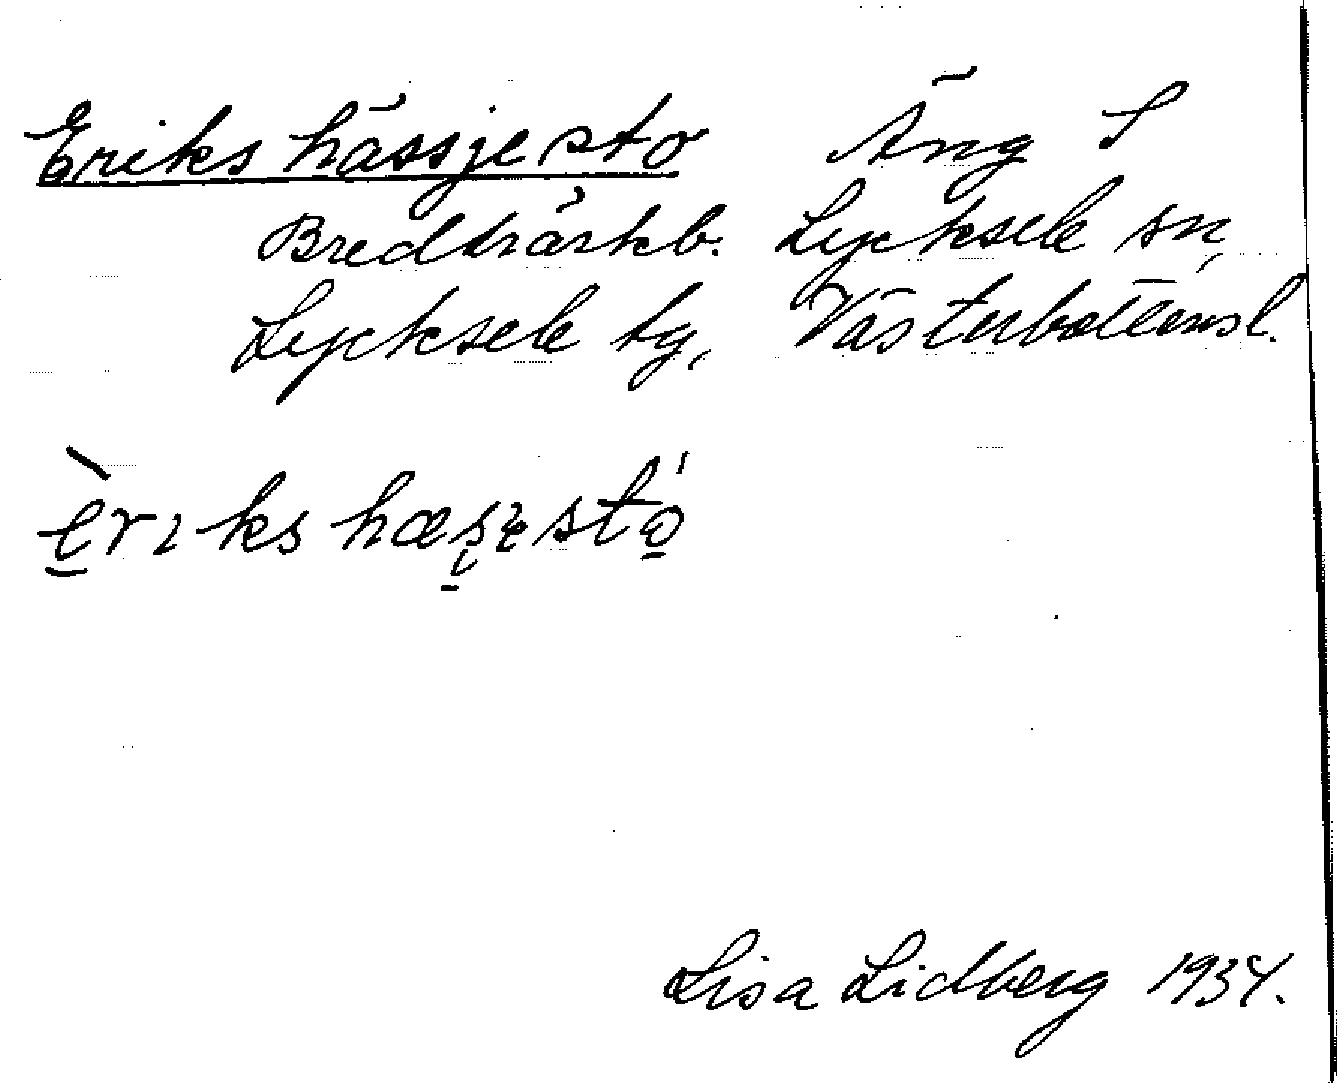 Erikshässjesto Äng S
Bredträskb. Lycksele sn,
Lycksele tg, Västerbottensl.
Lisa Lidberg 1934.